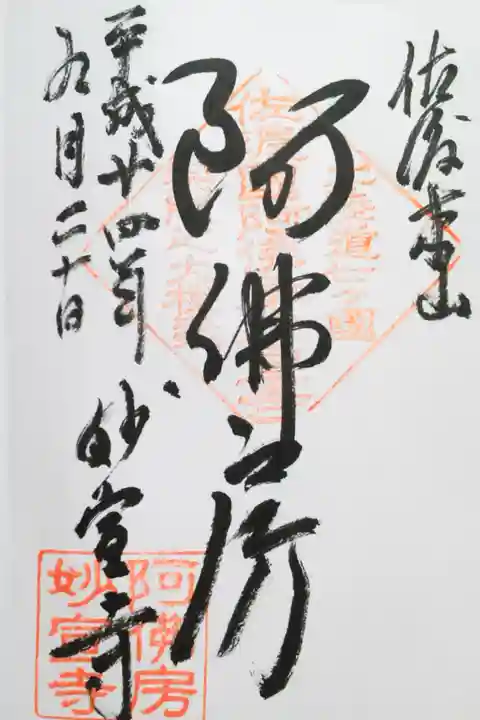 佐渡本山
阿佛房
妙宣寺
平成廿四年
九月二十日
阿佛房
妙宣寺